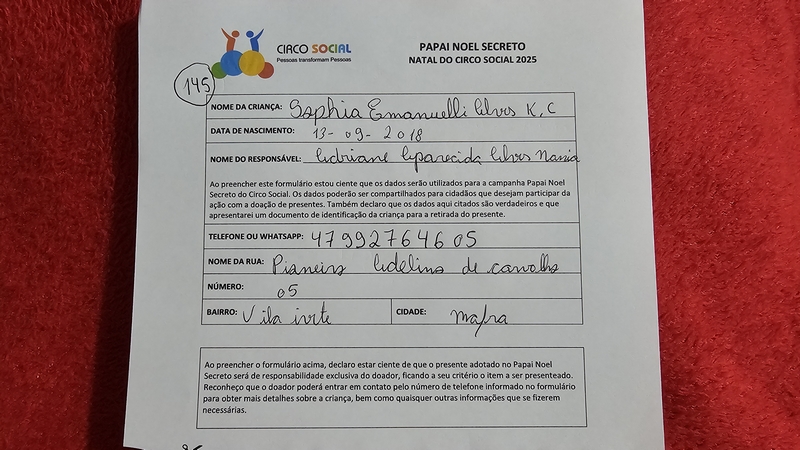 CIRCO SOCIAL
Pessoas transformam Pessoas
PAPAI NOEL SECRETO
NATAL DO CIRCO SOCIAL 2025
145
NOME DA CRIANÇA: Sophia Emanuelli Alves K. C
DATA DE NASCIMENTO: 13-09-2018
NOME DO RESPONSÁVEL: Adriane Aparecida Alves Maria
Ao preencher este formulário estou ciente que os dados serão utilizados para a campanha Papai Noel
Secreto do Circo Social. Os dados poderão ser compartilhados para cidadãos que desejam participar da
ação com a doação de presentes. Também declaro que os dados aqui citados são verdadeiros e que
apresentarei um documento de identificação da criança para a retirada do presente.
TELEFONE OU WHATSAPP: 47992764605
NOME DA RUA: Adelino de carvalho
NÚMERO: 05
BAIRRO: Vila ivete CIDADE: mafra
Ao preencher o formulário acima, declaro estar ciente de que o presente adotado no Papai Noel
Secreto será de responsabilidade exclusiva do doador, ficando a seu critério o item a ser presenteado.
Reconheço que o doador poderá entrar em contato pelo número de telefone informado no formulário
para obter mais detalhes sobre a criança, bem como quaisquer outras informações que se fizerem
necessárias.